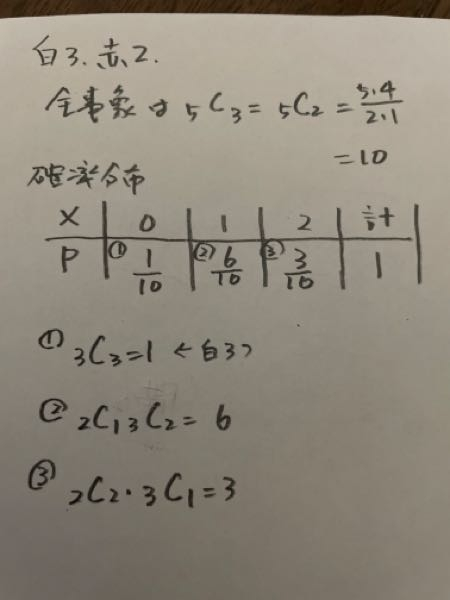 白3.赤2.
全事象は ₅C₃ = ₅C₂ = 5.4/2.1
= 10
確率分布
X | 0 | 1 | 2 | 計
P | ① 1/10 | ② 6/10 | ③ 3/10 | 1
① ₃C₃=1 ← 白3つ
② ₂C₁ ₃C₂ = 6
③ ₂C₂・₃C₁=3